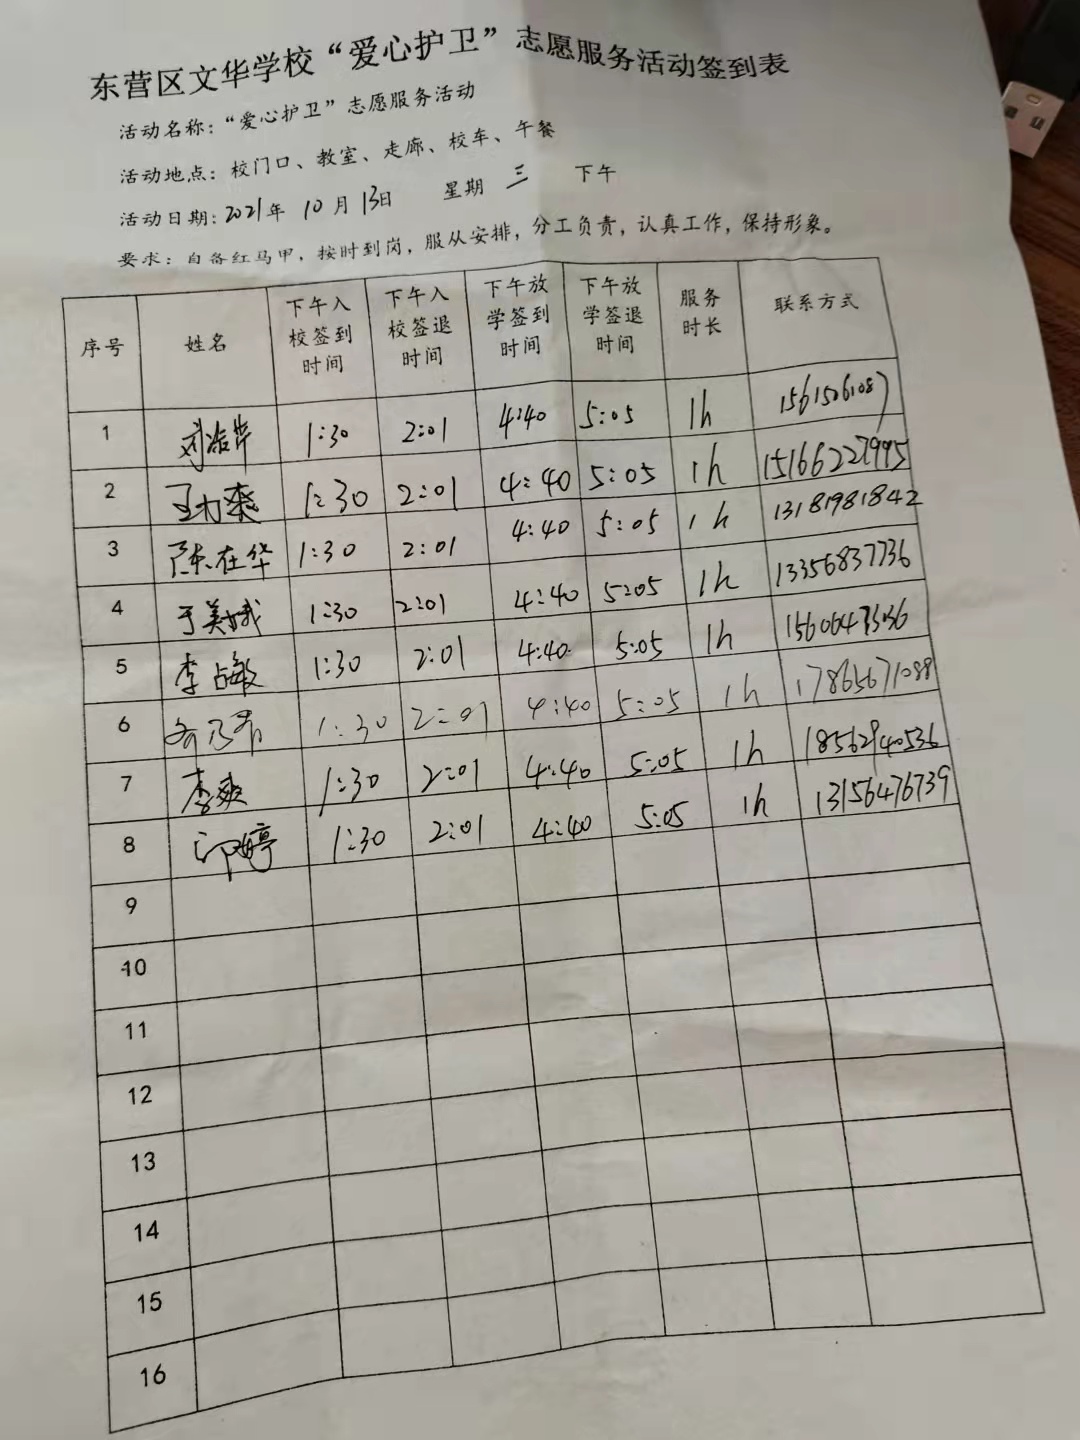 东营区文华学校“爱心护卫”志愿服务活动签到表
活动名称：“爱心护卫”志愿服务活动
活动地点：校门口、教室、走廊、校车、午餐
活动日期：2021年 10月 13日 星期 三 下午
要求：自备红马甲，按时到岗，服从安排，分工负责，认真工作，保持形象。
序号 姓名 下午入校签到时间 下午入校签退时间 下午放学签到时间 下午放学签退时间 服务时长 联系方式
1 1:30 2:01 4:40 5:05 1h 15615061087
2 1:30 2:01 4:40 5:05 1h 15166227995
3 陈在华 1:30 2:01 4:40 5:05 1h 13181981842
4 于美娥 1:30 2:01 4:40 5:05 1h 13356837736
5 李占敏 1:30 2:01 4:40 5:05 1h
6 1:30 2:01 4:40 5:05 1h 17865671088
7 李爽 1:30 2:01 4:40 5:05 1h 18562940536
8 邝婷 1:30 2:01 4:40 5:05 1h 13156476739
9
10
11
12
13
14
15
16